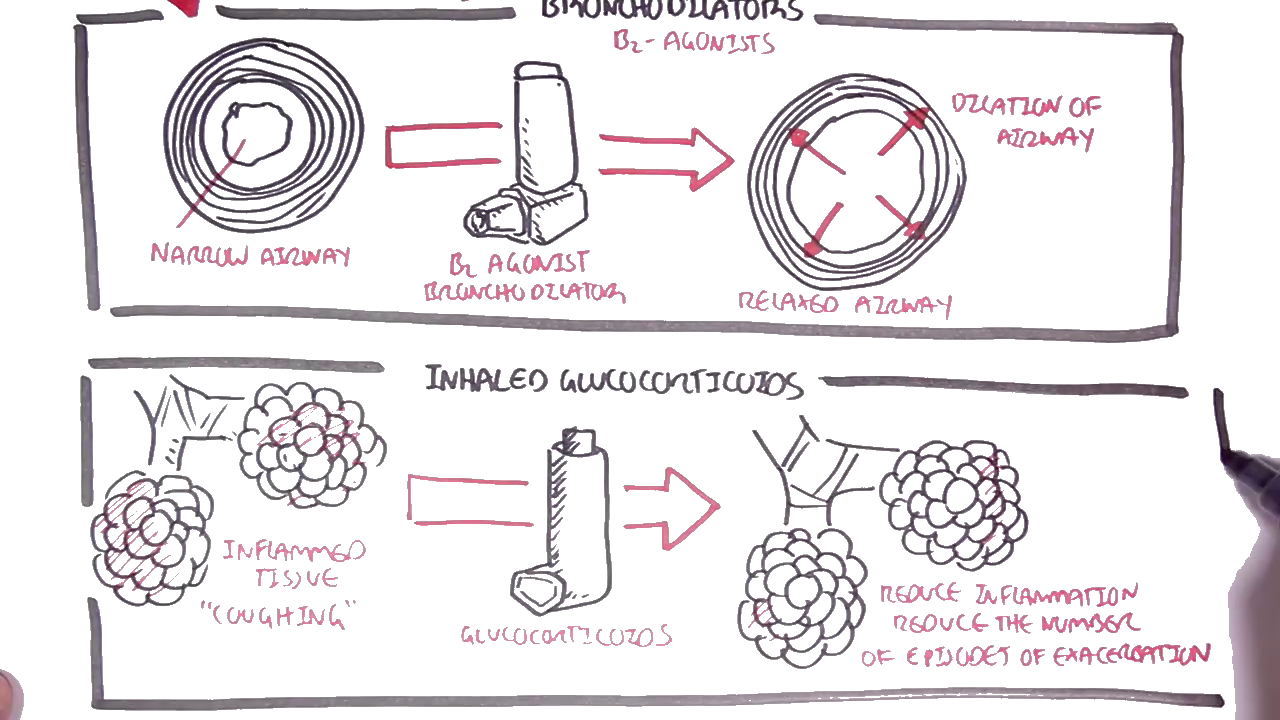 BRONCHODILATORS
B2- AGONISTS
DILATION OF
AIRWAY
NARROW AIRWAY
B2 AGONIST
BRONCHODILATORS
RELAXED AIRWAY
INHALED GLUCOCORTICOIDS
INFLAMMED
TISSUE
"COUGHING"
GLUCOCORTICOIDS
REDUCE INFLAMMATION
REDUCE THE NUMBER
OF EPISODES OF EXACERBATION